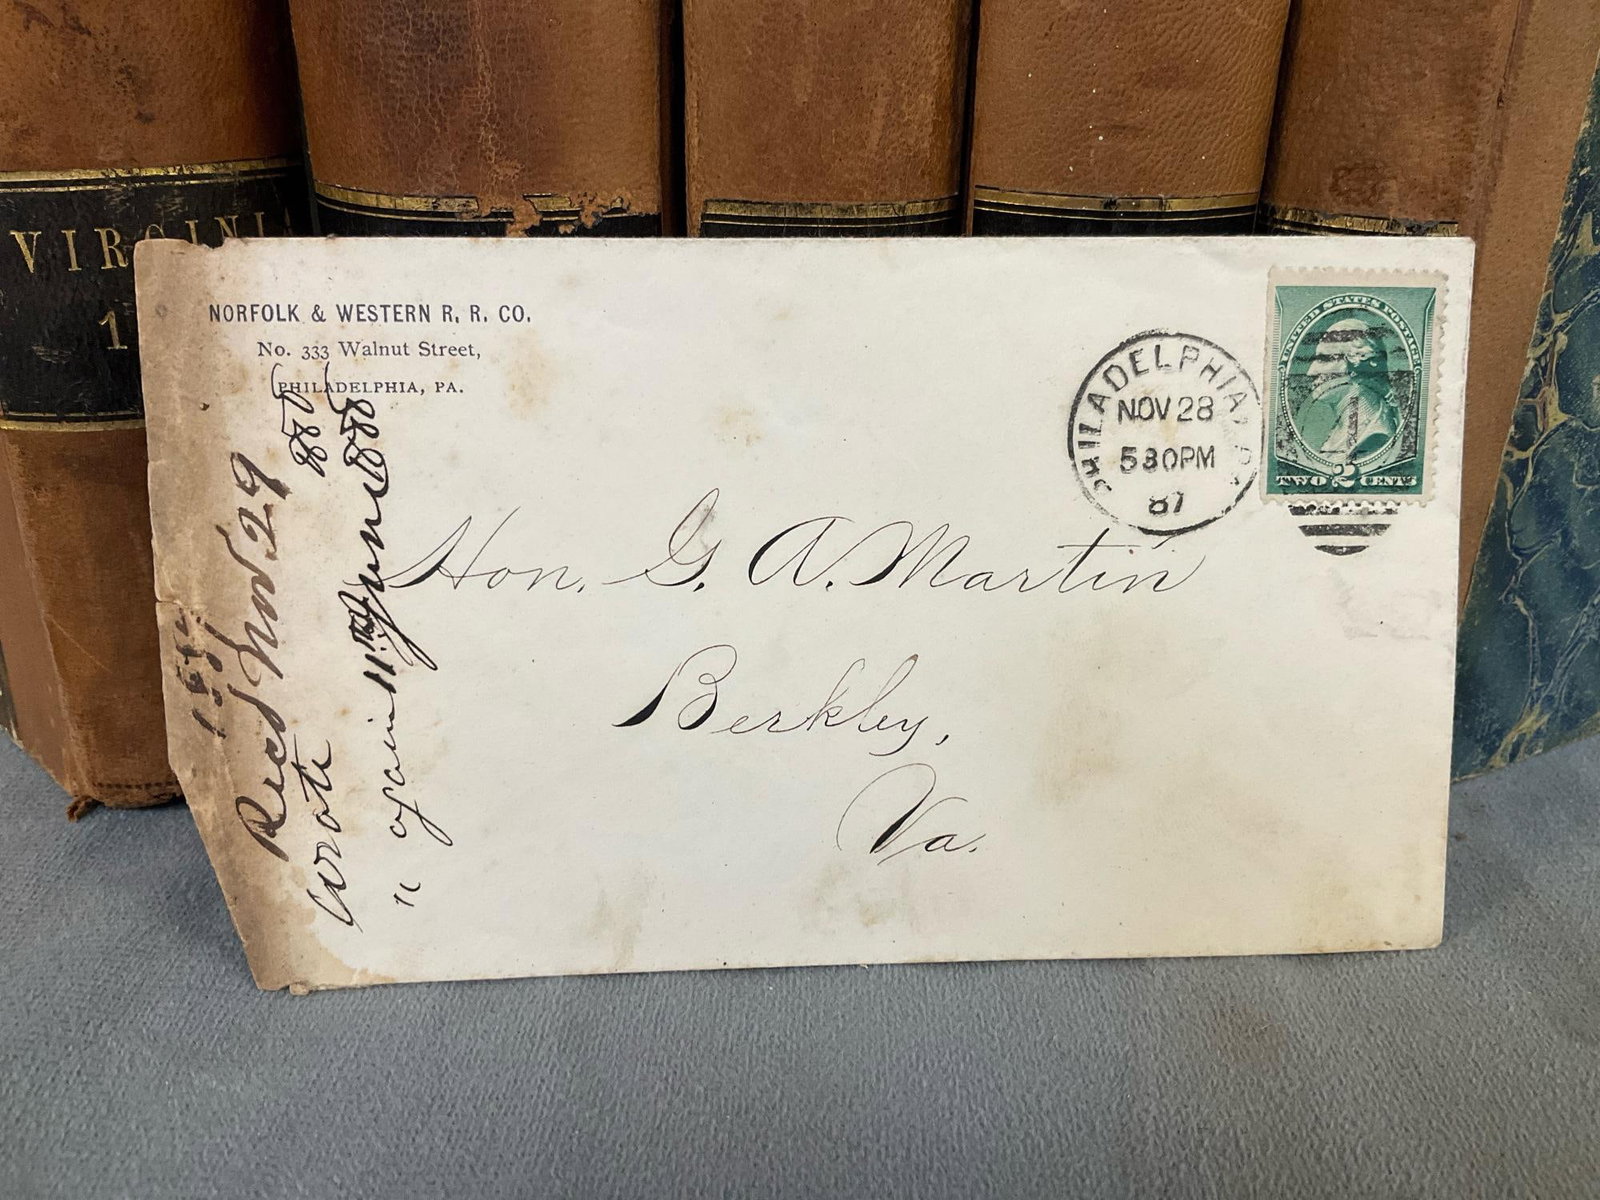 VIRGINIA
1
NORFOLK & WESTERN R. R. CO.
No. 333 Walnut Street,
PHILADELPHIA, PA.
PHILADELPHIA
NOV 28
530PM
87
UNITED STATES POSTAGE
TWO 2 CENTS
Hon. G. A. Martin
Berkley,
Va.
Recd Nov 29
wrote
" again 11th June 1888